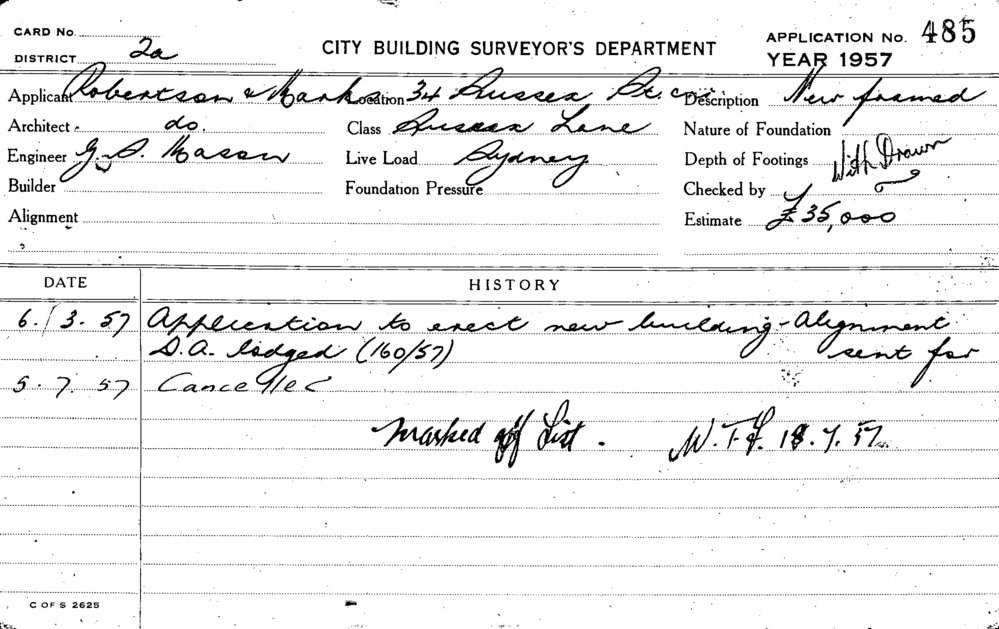 CARD No.
DISTRICT 2a
CITY BUILDING SURVEYOR'S DEPARTMENT
APPLICATION No. 485
YEAR 1957
Applicant Robertson & Marks Location 34 Sussex St. cnr. Description New framed
Architect do. Class Sussex Lane Nature of Foundation
Engineer G. S. Mason Live Load Sydney Depth of Footings With Drawn
Builder Foundation Pressure Checked by
Alignment Estimate £35,000
DATE HISTORY
6. 3. 57 Application to erect new building - Alignment
D.A. lodged (160/57) sent for
5. 7. 57 Cancelled
Marked off List. W.T.F. 18.7.57
C OF S 2625